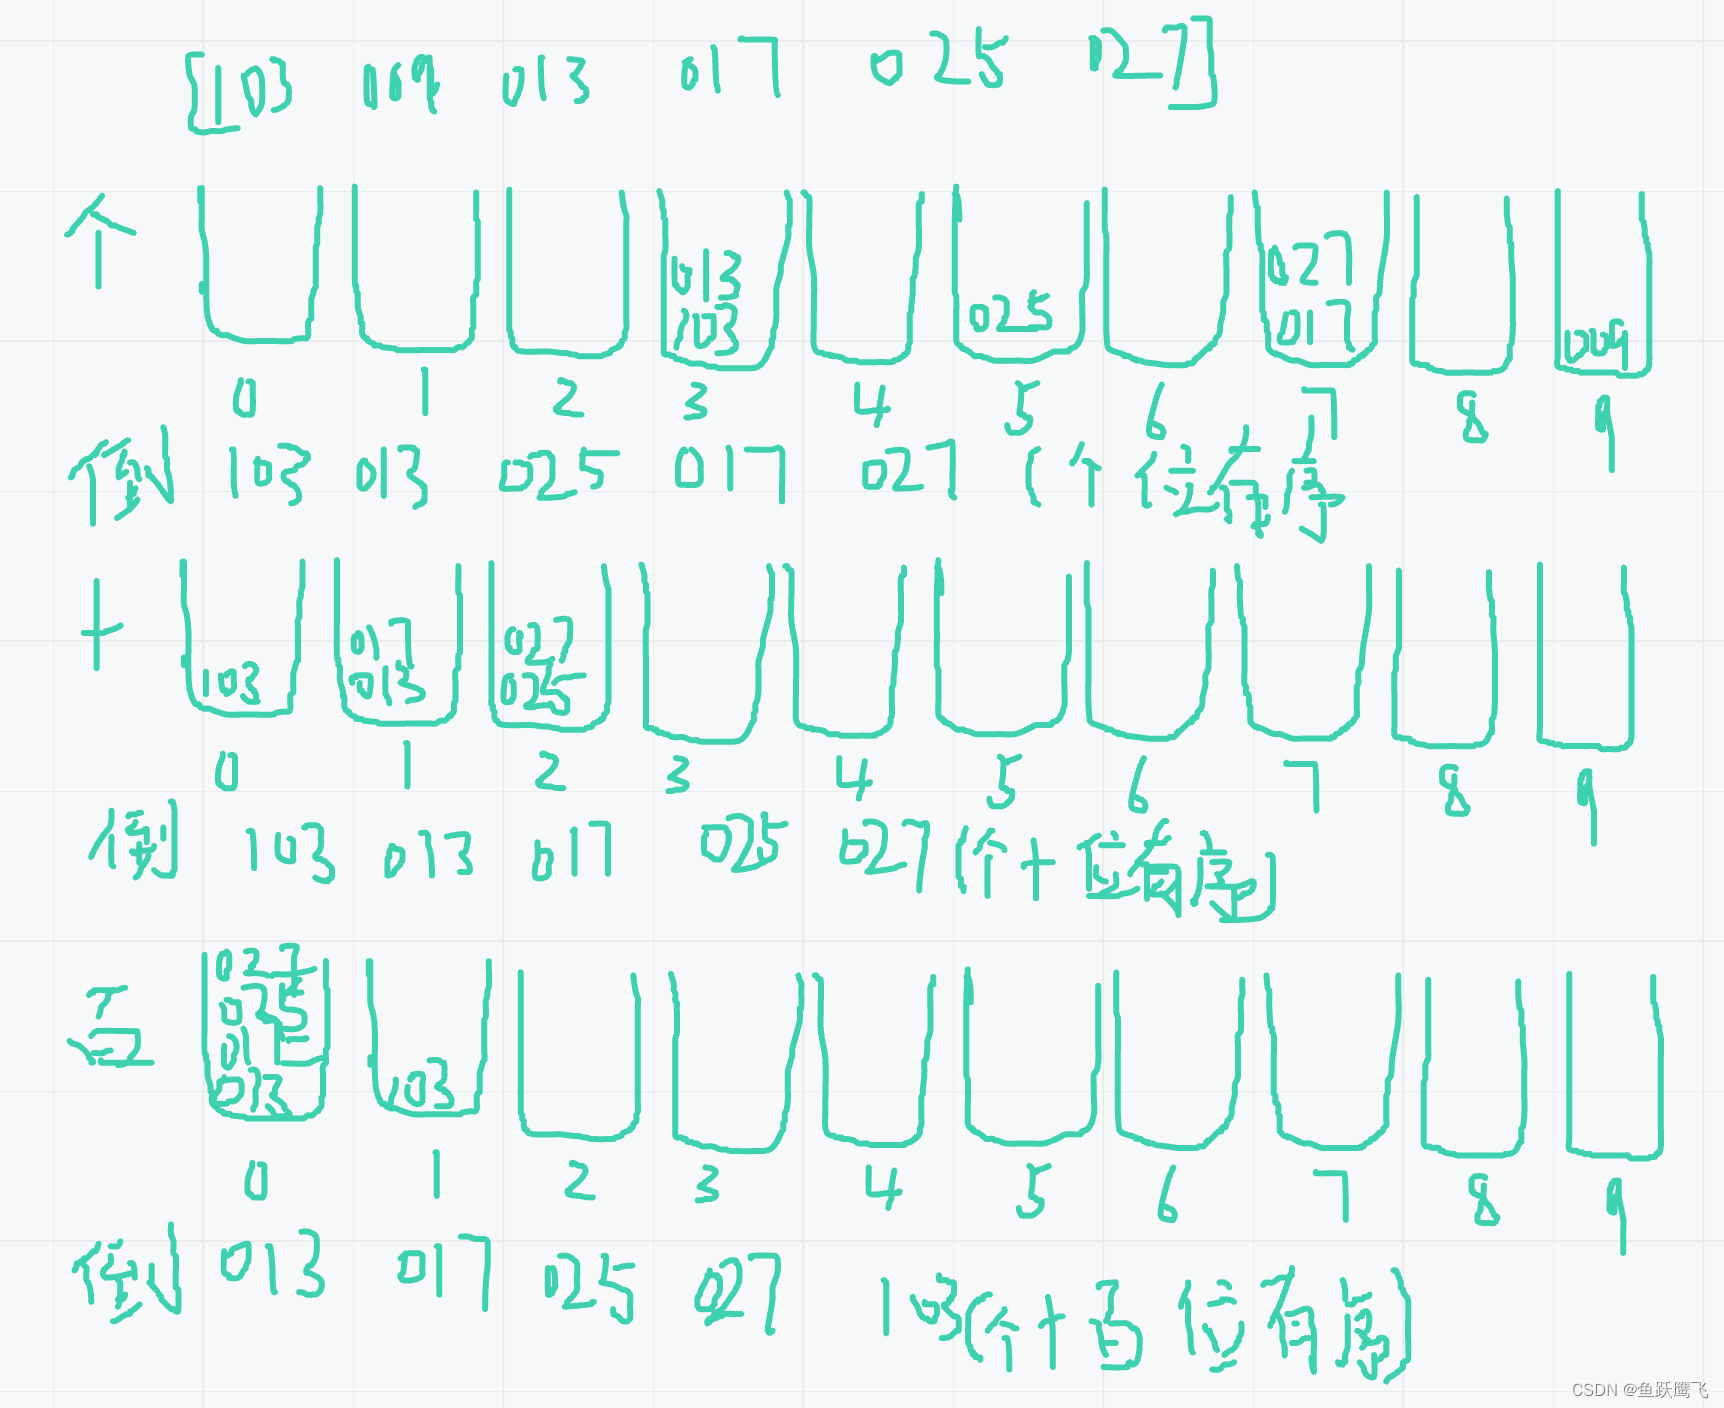 [103 009 013 017 025 027]
个
013 027
103 025 017 009
0 1 2 3 4 5 6 7 8 9
倒 103 013 025 017 027 (个位有序
十
017 027
103 013 025
0 1 2 3 4 5 6 7 8 9
倒 103 013 017 025 027 (个十位有序)
百
027
025
017
013 103
0 1 2 3 4 5 6 7 8 9
倒 013 017 025 027 103 (个十百位有序)
CSDN @鱼跃鹰飞